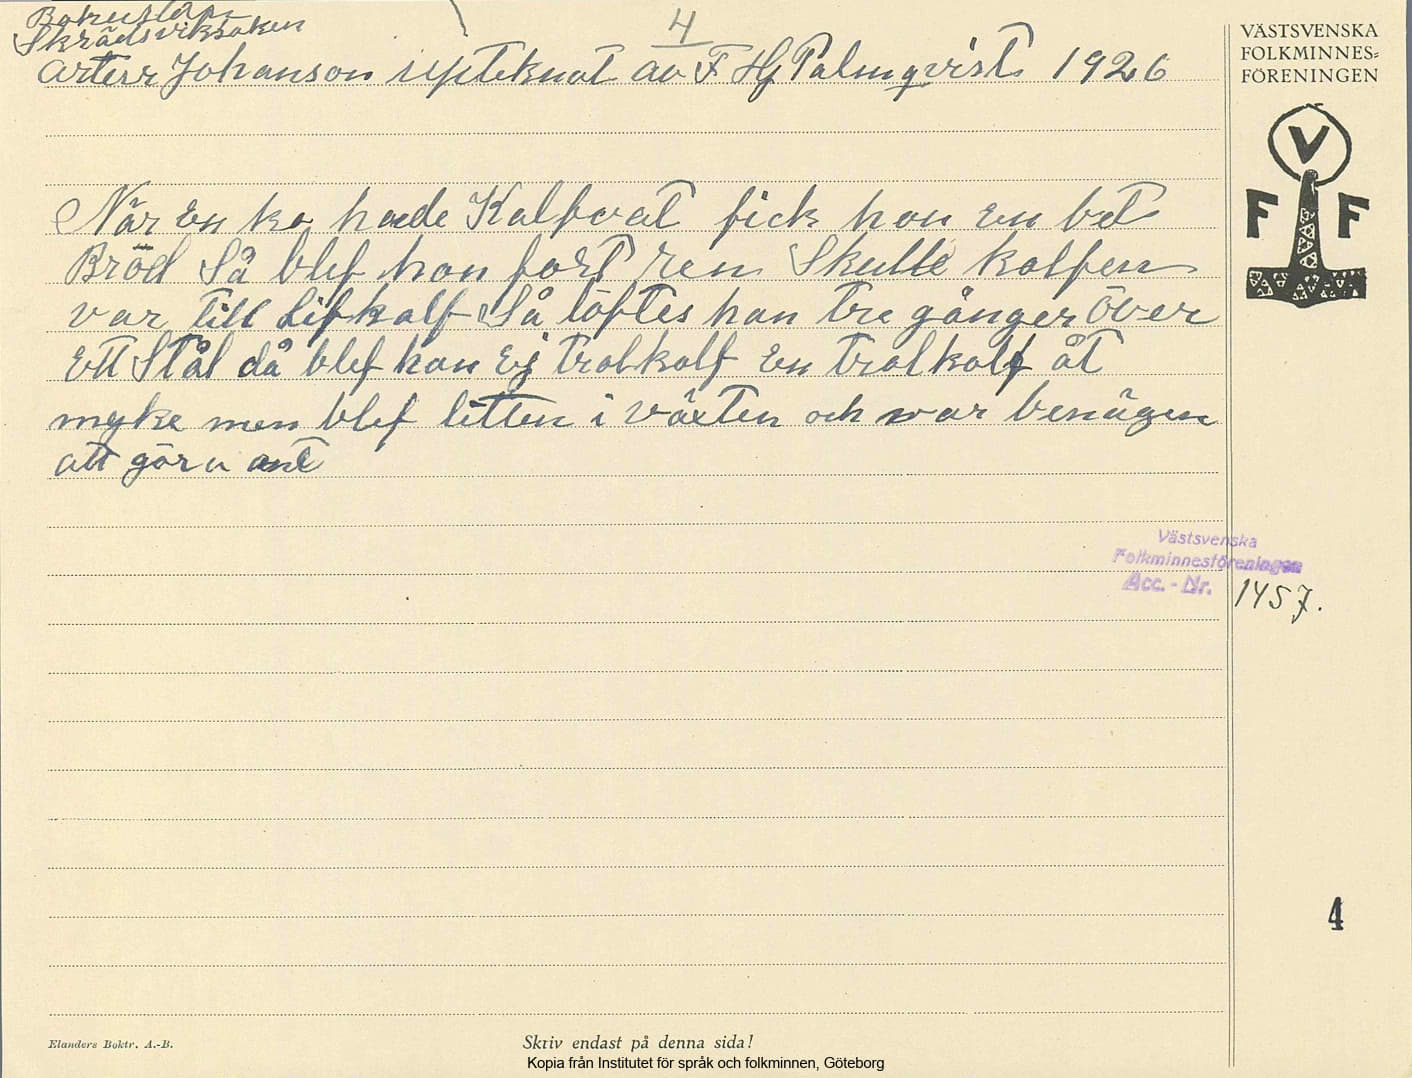 Bohuslän
4
Skrädsviksoken
Arterr Johanson upteknat av F Hj Palmqvist 1926
När En ko hade Kalfvat fick hon En bet
Bröd Så blef hon fort ren Skulle kalfen
var till Lifkalf Så löftes han tre gånger över
Ett Stål då blef han Ej trolkalf En trolkalf åt
myke men blef litten i växten och var benägen
att göra ont
VÄSTSVENSKA
FOLKMINNES=
FÖRENINGEN
V
F F
Västsvenska
Folkminnesföreningen
Acc. - Nr. 1457.
4
Elanders Boktr. A.-B.
Skriv endast på denna sida!
Kopia från Institutet för språk och folkminnen, Göteborg